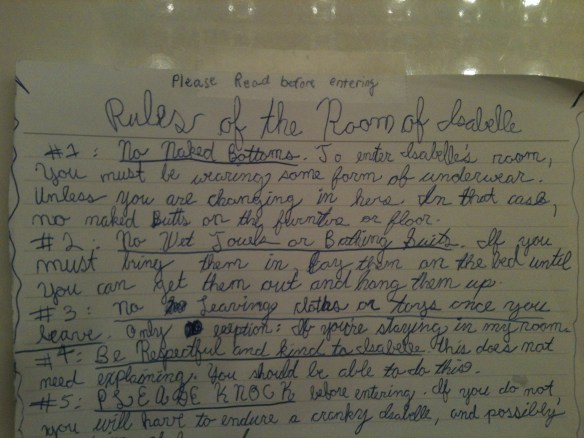 Please Read before entering
Rules of the Room of Isabelle
#1: No Naked Bottoms. To enter Isabelle's room,
you must be wearing some form of underwear.
Unless you are changing in here. In that case,
no naked Butts on the furnitue or floor.
#2: No Wet Towels or Bathing Suits. If you
must bring them in, lay them on the bed until
you can get them out and hang them up.
#3: No Leaving cloths or toys once you
leave. Only exeption: If you're staying in my room.
#4: Be Respectful and kind to Isabelle this does not
need explaining. You should be able to do this.
#5: PLEASE KNOCK before entering. If you do not,
you will have to endure a cranky Isabelle, and possibly